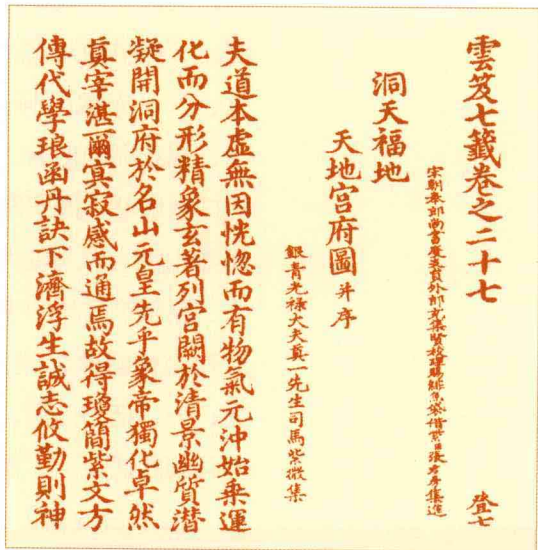 雲笈七籤卷之二十七
登七
宋朝奉郎尚書度支員外郎充集賢校理賜緋魚袋借紫臣張君房集進
洞天福地
天地宮府圖 并序
銀青光祿大夫真一先生司馬紫微集
夫道本虛無因恍惚而有物氣元沖始乗運
化而分形精象玄著列宮闕於清景幽質潜
凝開洞府於名山元皇先乎象帝獨化卓然
真宰湛爾冥寂感而通焉故得瓊簡紫文方
傳代學琅函丹訣下濟浮生誠志攸勤則神